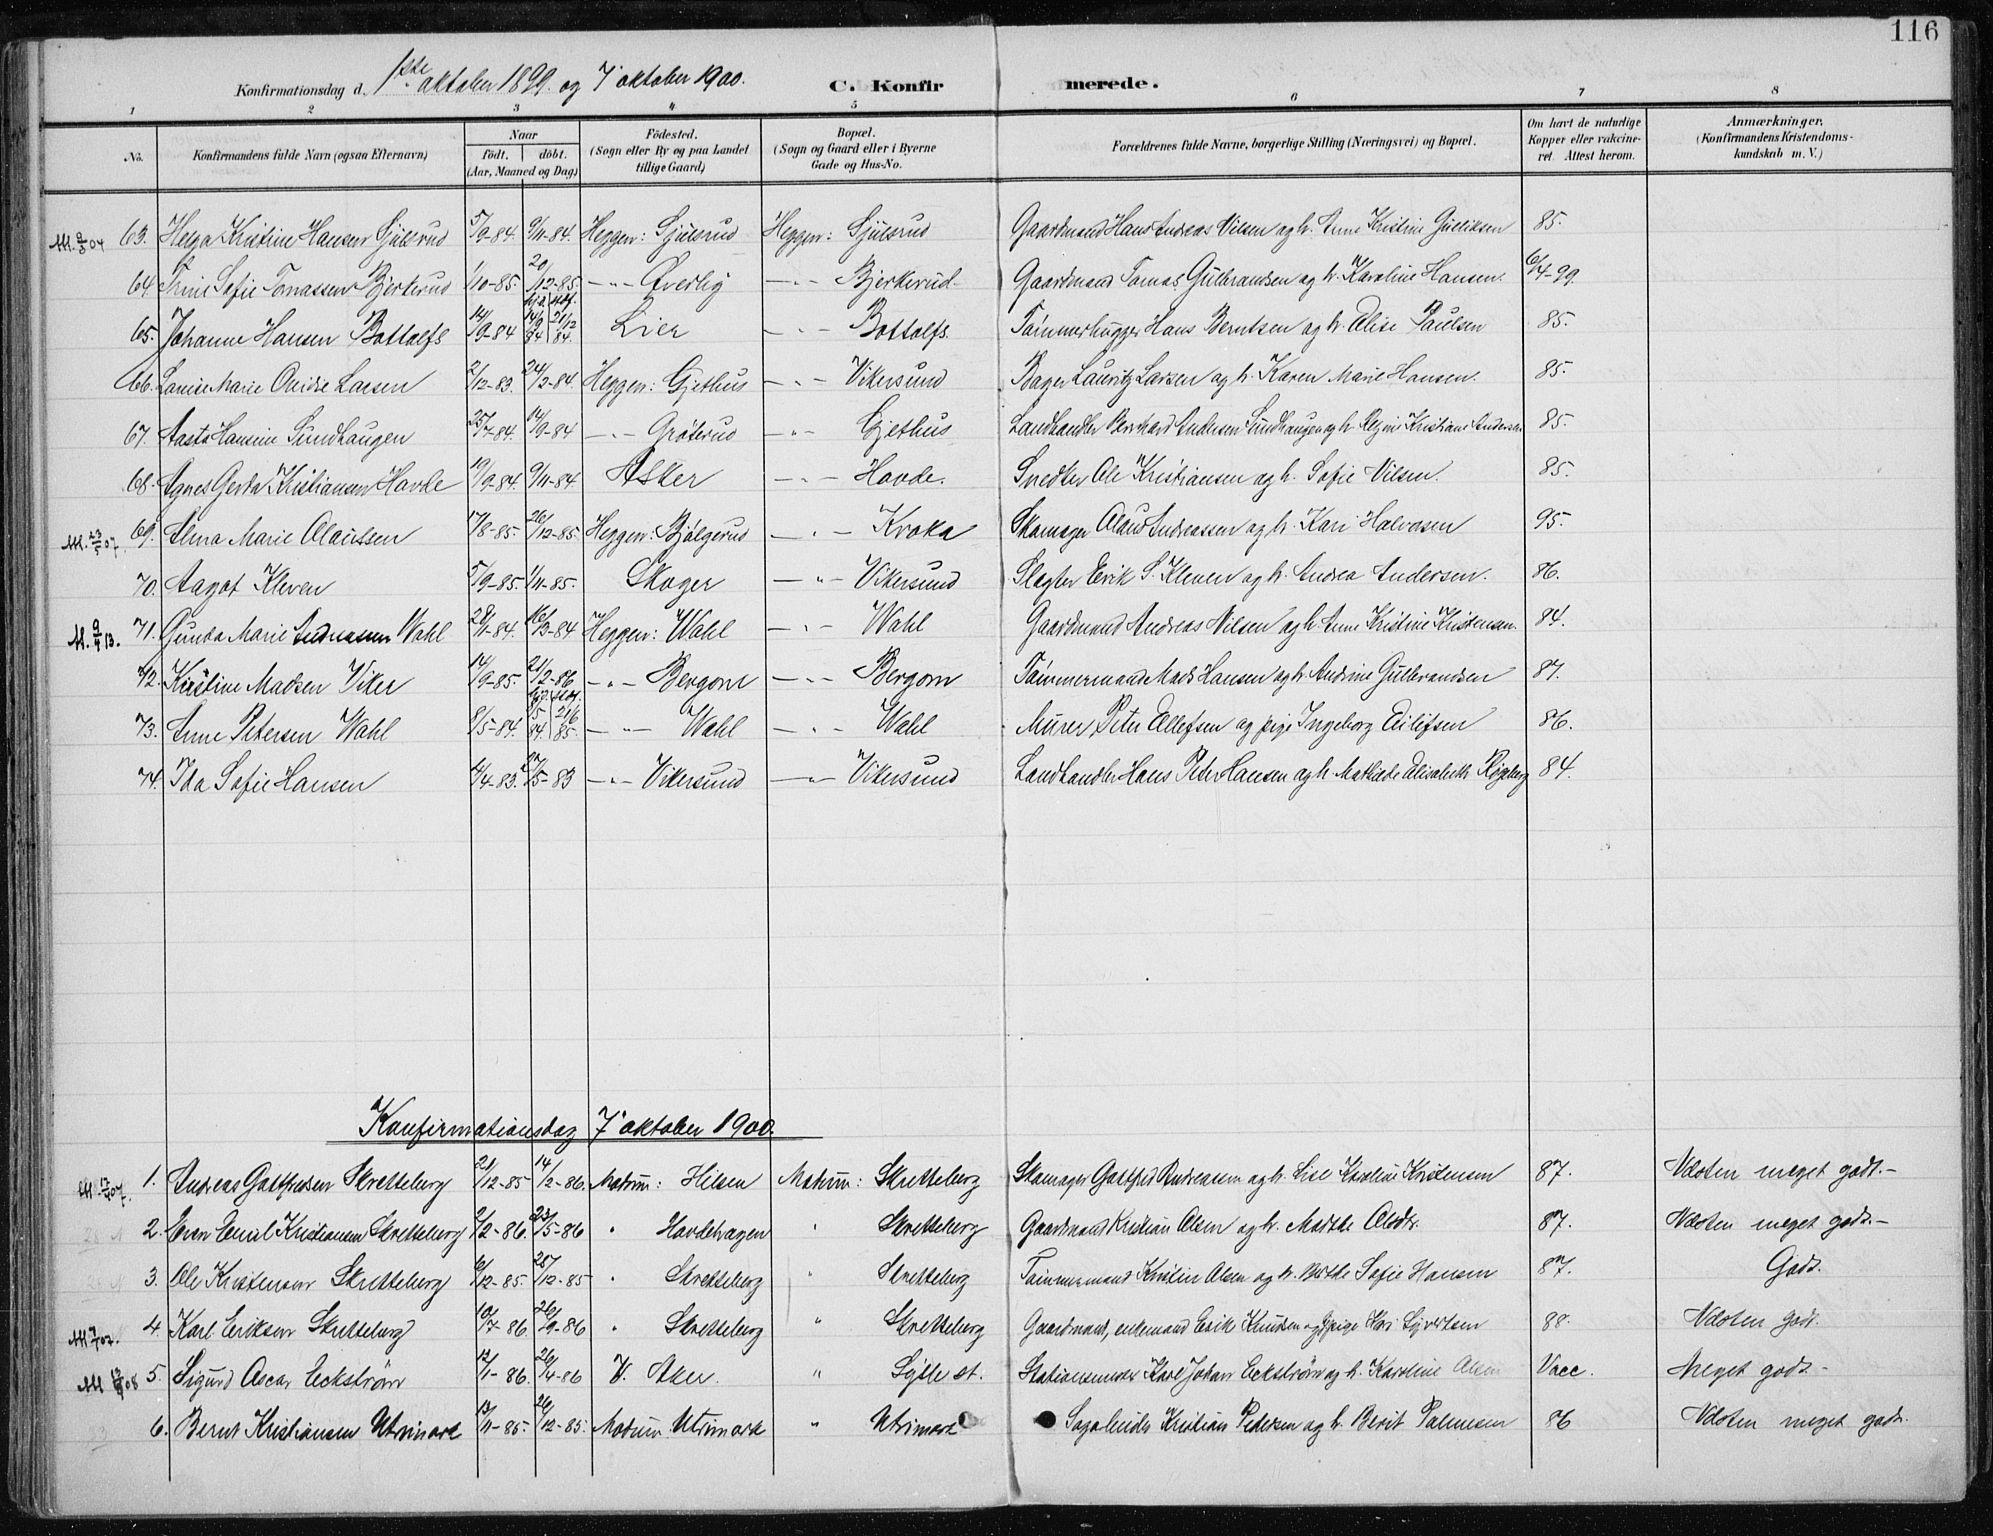 116
Konfirmationsdag d. 1ste oktober 1899. og 7' oktober 1900. C. Konfirmerede.
1 2 3 4 5 6 7 8
No. Konfirmandens fulde Navn (ogsaa Efternavn) Naar födt. döbt. (Aar, Maaned og Dag) Födested. (Sogn eller By og paa Landet tillige Gaard) Bopæl. (Sogn og Gaard eller i Byerne Gade og Hus-No. Forældrenes fulde Navne, borgerlige Stilling (Næringsvei) og Bopæl. Om havt de naturlige Kopper eller vakcineret. Attest herom. Anmærkninger. (Konfirmandens Kristendomskundskab m. V.)
63. Helga Kristine Hansen Sjulsrud 5/9-84. 9/11-84. Heggen: Sjulsrud Heggen: Sjulsrud Gaardmand Hans Andreas Nilsen og h. Anne Kristine Gulliksen 85.
64. Trine Sofie Tomassen Bjerkerud 1/10-85. 20/12-85. -"- Øverby -"- Bjerkerud Gaardmand Tomas Gulbrandsen og h. Karoline Hansen. 6/4-99.
65. Johanne Hansen Bottolfs 14/9-84 21/12 84. Lier -"- Bottolfs. Tømmerhugger Hans Berntsen og h. Elise Paulsen 85.
66. Louise Marie Ovidie Larsen 2/12-83. 24/2-84. Heggen: Gjethus -"- Vikersund Bager Lauritz Larsen og h. Karen Marie Hansen. 85.
67. Aasta Hansine Sundhaugen 25/7-84. 14/9-84 -"- Grøterud -"- Gjethus Landhandler Andersen Sundhaugen og h. Kristiane Andersen 85.
68. Agnes Gerda Kristiansen Hovde 19/9-84. 9/11-84. Asker -"- Hovde. Snedker Ole Kristiansen og h. Sofie Nilsen. 85.
69. Alma Marie Olausen 17/8-85. 26/12-85. Heggen: Bjølgerud -"- Kroka Skomager Olaus Andreassen og h. Kari Halvorsen 95.
70. Aagot Kleven 5/9-85. 1/11-85. Skoger -"- Vikersund Slagter Erik S. Kleven og h. Andrea Andersen. 86.
71. Gunda Marie Andreassen Wahl 28/1-84. 16/3-84 Heggen: Wahl -"- Wahl Gaardmand Andreas Nilsen og h. Anne Kristine Kristensen. 84.
72. Kristine Madsen Viker 14/9-85. 21/2-86 -"- Bergom -"- Bergom Tømmermand Mads Hansen og h. Andrine Gulbrandsen 87.
73. Anne Petersen Wahl 8/5-84. 21/6 85. -"- Wahl -"- Wahl Murer Peter Ellefsen og pige Ingeborg Eilefsen 86.
74. Ida Sofie Hansen 4/4-83. 27/5-83 -"- Vikersund -"- Vikersund Landhandler Hans Peter Hansen og h. Mathilde Elisabeth Røgeberg 84.
Konfirmationsdag 7' oktober 1900.
1. Andreas Gottfredsen Skretteberg 21/12-85 14/2-86. Modum: Hilsen Modum: Skretteberg Skomager Gottfred Andreassen og h. Lise Karoline Kristensen 87. Ndoten meget godt.-
2. Even Emil Kristiansen Skretteberg 2/2-86. 23/5-86 " Hovdehagen " Skretteberg Gaardmand Kristian Olsen og h. Mathilde 87. Ndoten meget godt.-
3. Ole Kristensen Skretteberg 6/12-85. 28/12-85 " Skretteberg " Skretteberg Tømmermand Kristen Olsen og h. Sofie Hansen 87. Godt.
4. Karl Eriksen Skretteberg 10/7-86. 26/9-86 " Skretteberg " Skretteberg Gaardmand, enkemand Erik Knudsen og pige Kari Syvertsen 88. Ndoten godt.
5. Sigurd Oscar Eckstrøm 12/1-86. 26/4-86 V. Aker. " Sysle st. Stationsmester Karl Johan Eckstrøm og h. Karoline Olsen Vacc. Meget godt.-
6. Bernt Kristiansen Utvimark 13/11-85. 26/12-85. Modum Utvimark " Utvimark Kristian Pedersen og h. Berit Palmesen 86 Ndoten meget godt.